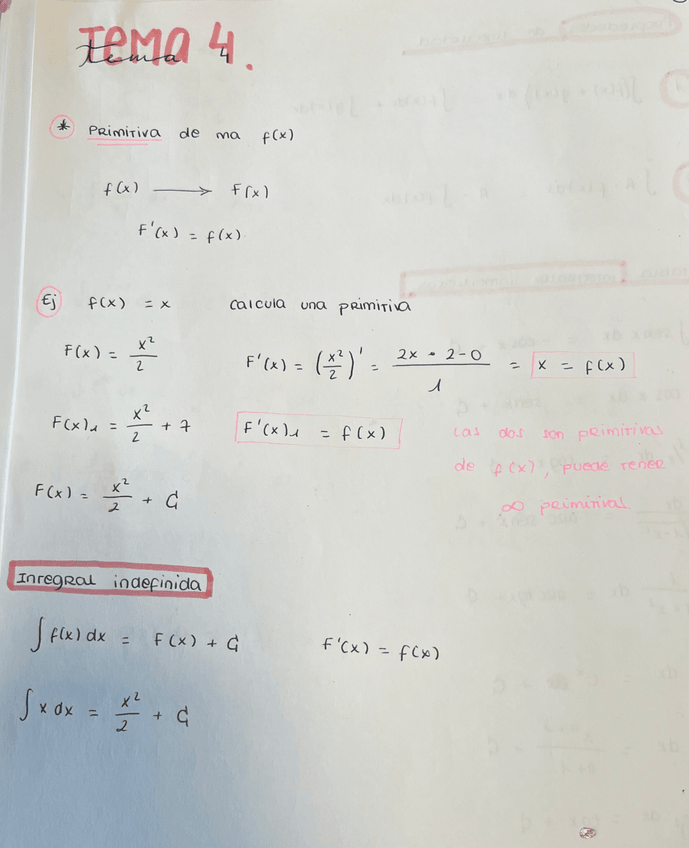 TEMA 4.
tema 4
* Primitiva de ma f(x)
f(x) ⟶ F(x)
F'(x) = f(x)
Ej f(x) = x calcula una primitiva
F(x) = x²/2 F'(x) = (x²/2)' = (2x · 2-0)/1 = x = f(x)
F(x)₁ = x²/2 + 7 F'(x)₁ = f(x) Las dos son primitivas
de f(x), puede tener
F(x) = x²/2 + C ∞ primitivas
Integral indefinida
∫ f(x) dx = F(x) + C F'(x) = f(x)
∫ x dx = x²/2 + C